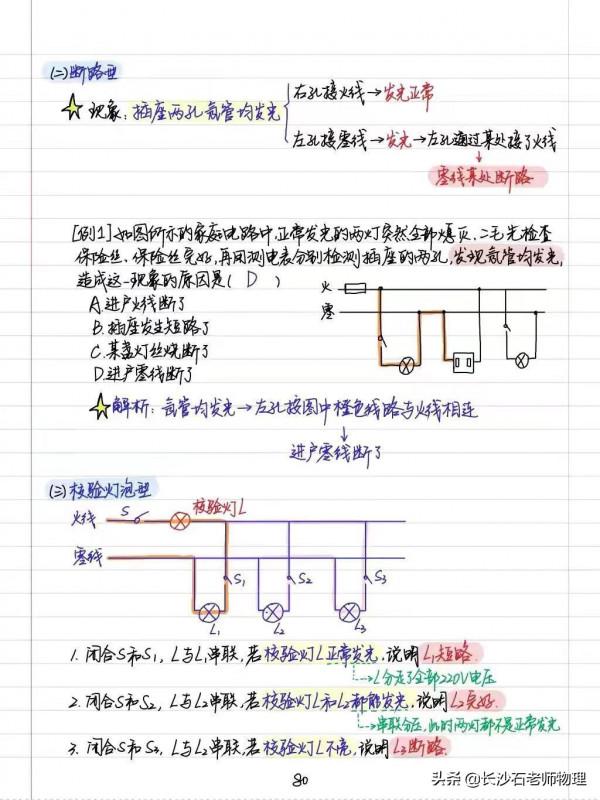 (二)断路型
现象：插座两孔氖管均发光
右孔接火线→发光正常
左孔接零线→发光→左孔通过某处接了火线
零线某处断路
[例1]如图所示的家庭电路中,正常发光的两灯突然全部熄灭.二毛先检查
保险丝、保险丝完好,再用测电表分别检测插座的两孔,发现氖管均发光,
造成这一现象的原因是( D )
A.进户火线断了
B.插座发生短路了
C.某盏灯丝烧断了
D.进户零线断了
火
零
解析：氖管均发光→左孔按图中橙色线路与火线相连
进户零线断了
(三)校验灯泡型
火线
S
校验灯L
零线
S1
S2
S3
L1
L2
L3
1. 闭合S和S1, L与L1串联,若校验灯L正常发光,说明L1短路.
→L分走了全部220V电压
2. 闭合S和S2, L与L2串联,若校验灯L和L2都能发光,说明L2完好.
→串联分压,此时两灯都不是正常发光
3. 闭合S和S3, L与L2串联,若校验灯L不亮,说明L3断路.
80
头条 @长沙石老师物理